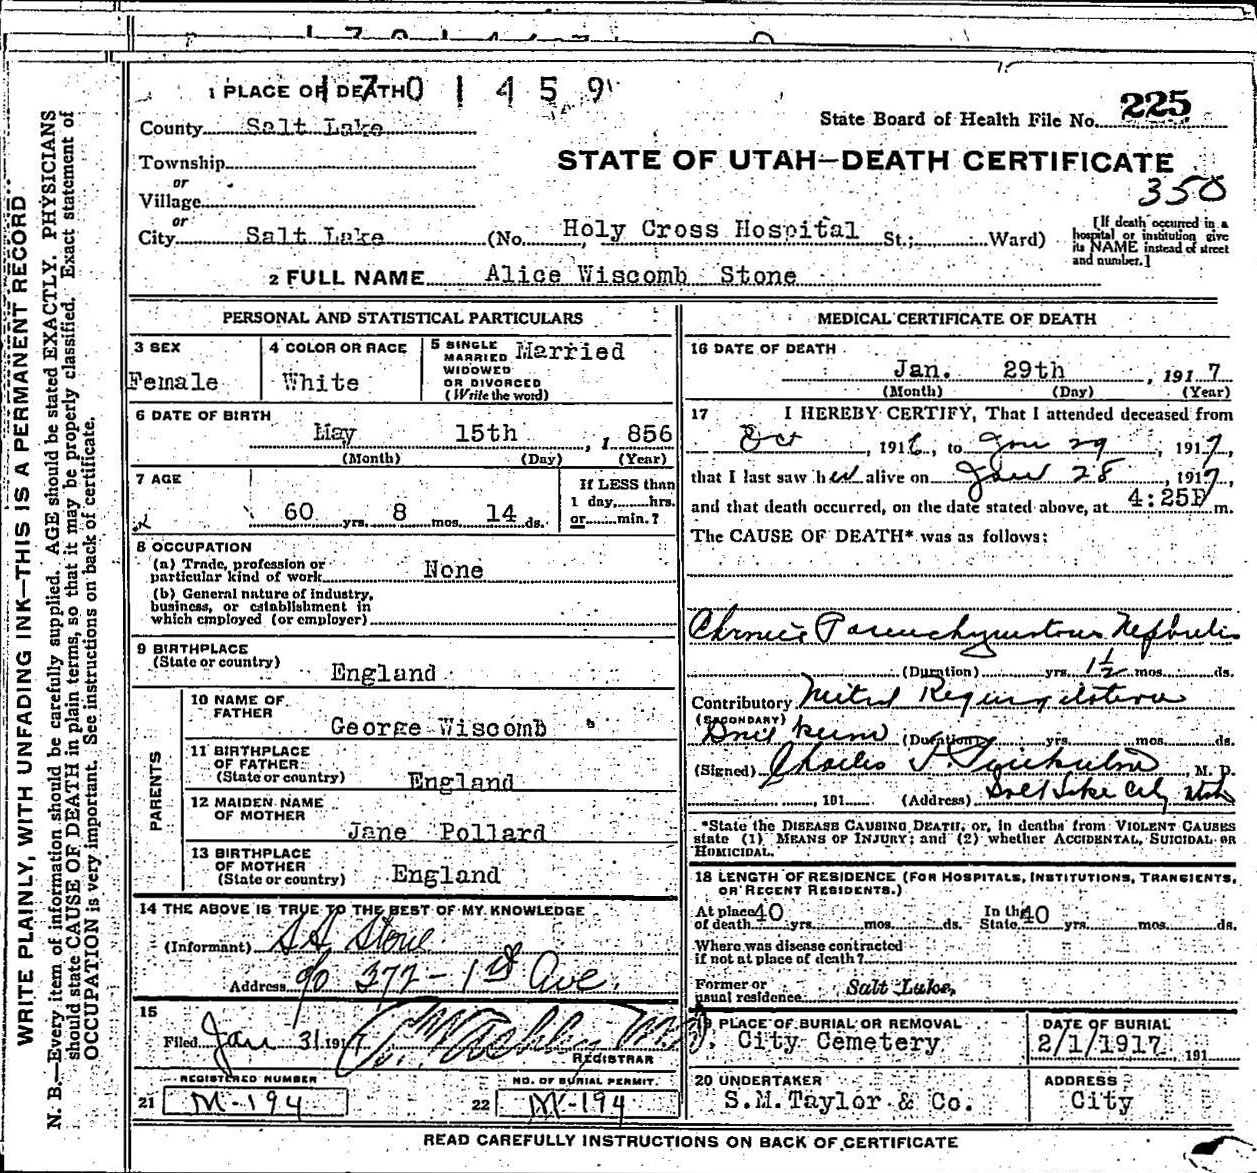 1 PLACE OF DEATH 1701459
County Salt Lake
State Board of Health File No. 225
Township
STATE OF UTAH—DEATH CERTIFICATE
or
350
Village
or
City Salt Lake (No. Holy Cross Hospital St.; Ward)
[If death occurred in a hospital or institution give its NAME instead of street and number.]
2 FULL NAME Alice Wiscomb Stone
PERSONAL AND STATISTICAL PARTICULARS
3 SEX
Female
4 COLOR OR RACE
White
5 SINGLE
MARRIED
WIDOWED
OR DIVORCED
(Write the word)
Married
6 DATE OF BIRTH
May 15th, 1856
(Month) (Day) (Year)
7 AGE
60 yrs. 8 mos. 14 ds.
If LESS than
1 day, hrs.
or min.?
8 OCCUPATION
(a) Trade, profession or
particular kind of work None
(b) General nature of industry,
business, or establishment in
which employed (or employer)
9 BIRTHPLACE
(State or country)
England
PARENTS
10 NAME OF
FATHER
George Wiscomb
11 BIRTHPLACE
OF FATHER
(State or country)
England
12 MAIDEN NAME
OF MOTHER
Jane Pollard
13 BIRTHPLACE
OF MOTHER
(State or country)
England
14 THE ABOVE IS TRUE TO THE BEST OF MY KNOWLEDGE
(Informant) Stone
Address % 377 - 1st Ave.
15
Filed Jan 31 1917
REGISTRAR
REGISTERED NUMBER
21 M-194
NO. OF BURIAL PERMIT.
22 M-194
MEDICAL CERTIFICATE OF DEATH
16 DATE OF DEATH
Jan. 29th, 1917
(Month) (Day) (Year)
17 I HEREBY CERTIFY, That I attended deceased from
Oct, 1916, to Jan 29, 1917,
that I last saw her alive on Jan 28, 1917,
and that death occurred, on the date stated above, at 4:25P m.
The CAUSE OF DEATH* was as follows:
Chronic Parenchymatous Nephritis
(Duration) yrs. 1½ mos. ds.
Contributory Mitral Regurgitation
(SECONDARY)
(Duration) yrs. mos. ds.
(Signed) Charles, M. D.
, 191 (Address) Salt Lake City Utah
*State the DISEASE CAUSING DEATH, or, in deaths from VIOLENT CAUSES
state (1) MEANS OF INJURY; and (2) whether ACCIDENTAL, SUICIDAL OR
HOMICIDAL.
18 LENGTH OF RESIDENCE (FOR HOSPITALS, INSTITUTIONS, TRANSIENTS,
OR RECENT RESIDENTS.)
At place of death 40 yrs. mos. ds. In the State 40 yrs. mos. ds.
Where was disease contracted
if not at place of death?
Former or
usual residence Salt Lake,
19 PLACE OF BURIAL OR REMOVAL
City Cemetery
DATE OF BURIAL
2/1/1917 191
20 UNDERTAKER
S.M. Taylor & Co.
ADDRESS
City
READ CAREFULLY INSTRUCTIONS ON BACK OF CERTIFICATE
WRITE PLAINLY, WITH UNFADING INK—THIS IS A PERMANENT RECORD
N. B.—Every item of information should be carefully supplied. AGE should be stated EXACTLY. PHYSICIANS
should state CAUSE OF DEATH in plain terms, so that it may be properly classified. Exact statement of
OCCUPATION is very important. See instructions on back of certificate.